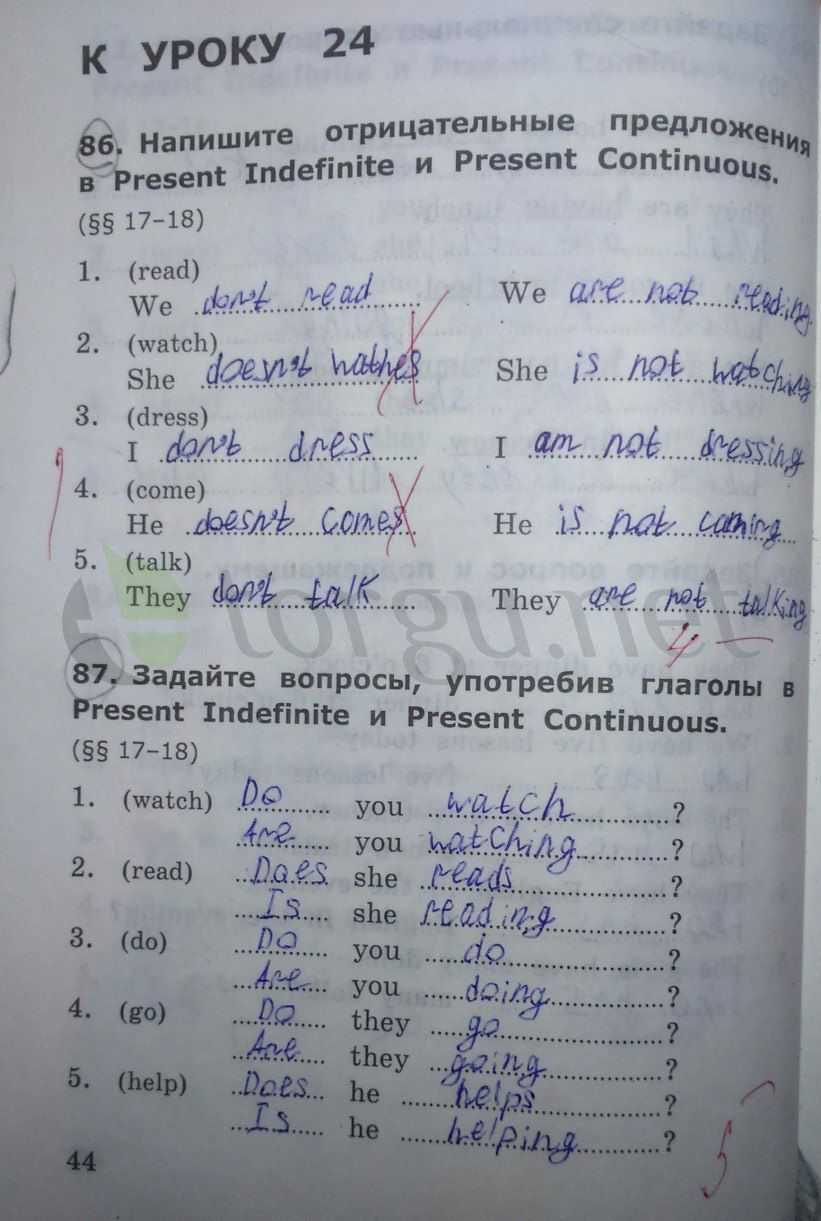 К УРОКУ 24
86. Напишите отрицательные предложения
в Present Indefinite и Present Continuous.
(§§ 17–18)
1. (read)
We don't read We are not reading
2. (watch)
She doesn't wathes She is not watching
3. (dress)
I don't dress I am not dressing
4. (come)
He doesn't comes He is not coming
5. (talk)
They don't talk They are not talking
torgu.net
4 –
87. Задайте вопросы, употребив глаголы в
Present Indefinite и Present Continuous.
(§§ 17–18)
1. (watch) Do you watch ?
Are you watching ?
2. (read) Does she reads ?
Is she reading ?
3. (do) Do you do ?
Are you doing ?
4. (go) Do they go ?
Are they going ?
5. (help) Does he helps ?
Is he helping ?
5
44